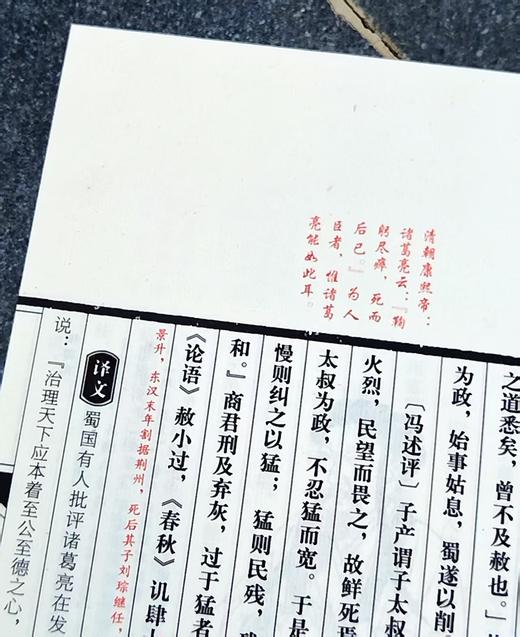 清朝康熙帝：
诸葛亮云：『鞠
躬尽瘁，死而
后已。』为人
臣者，惟诸葛
亮能如此耳。
之道悉矣，曾不及赦也。」
为政，始事姑息，蜀遂以削
〔冯述评〕子产谓子太叔
火烈，民望而畏之，故鲜死焉
太叔为政，不忍猛而宽。于是
慢则纠之以猛；猛则民残，
和。』商君刑及弃灰，过于猛者
《论语》赦小过，《春秋》讥肆
景升，东汉末年割据荆州，死后其子刘琮继任，
译文
蜀国有人批评诸葛亮在发
说：『治理天下应本着至公至德之心，